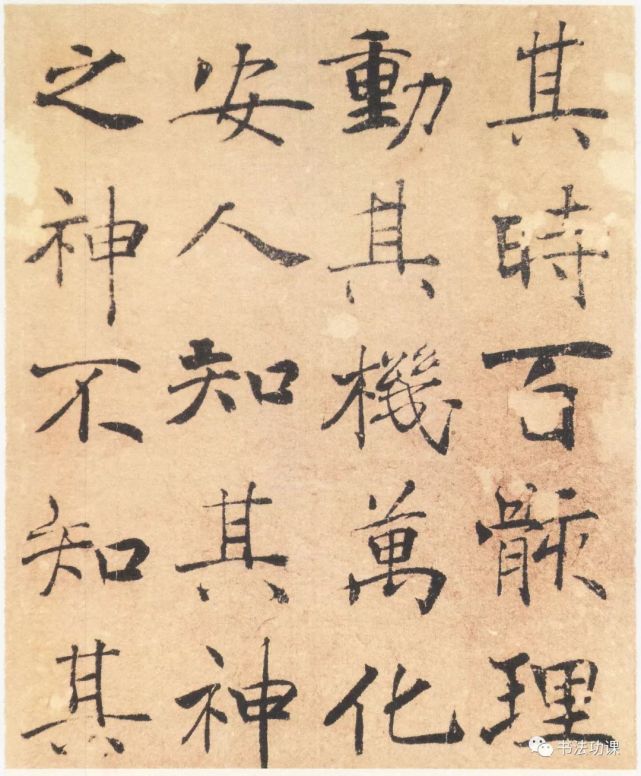 其時百骸理
動其機萬化
安人知其神
之神不知其
书法功课